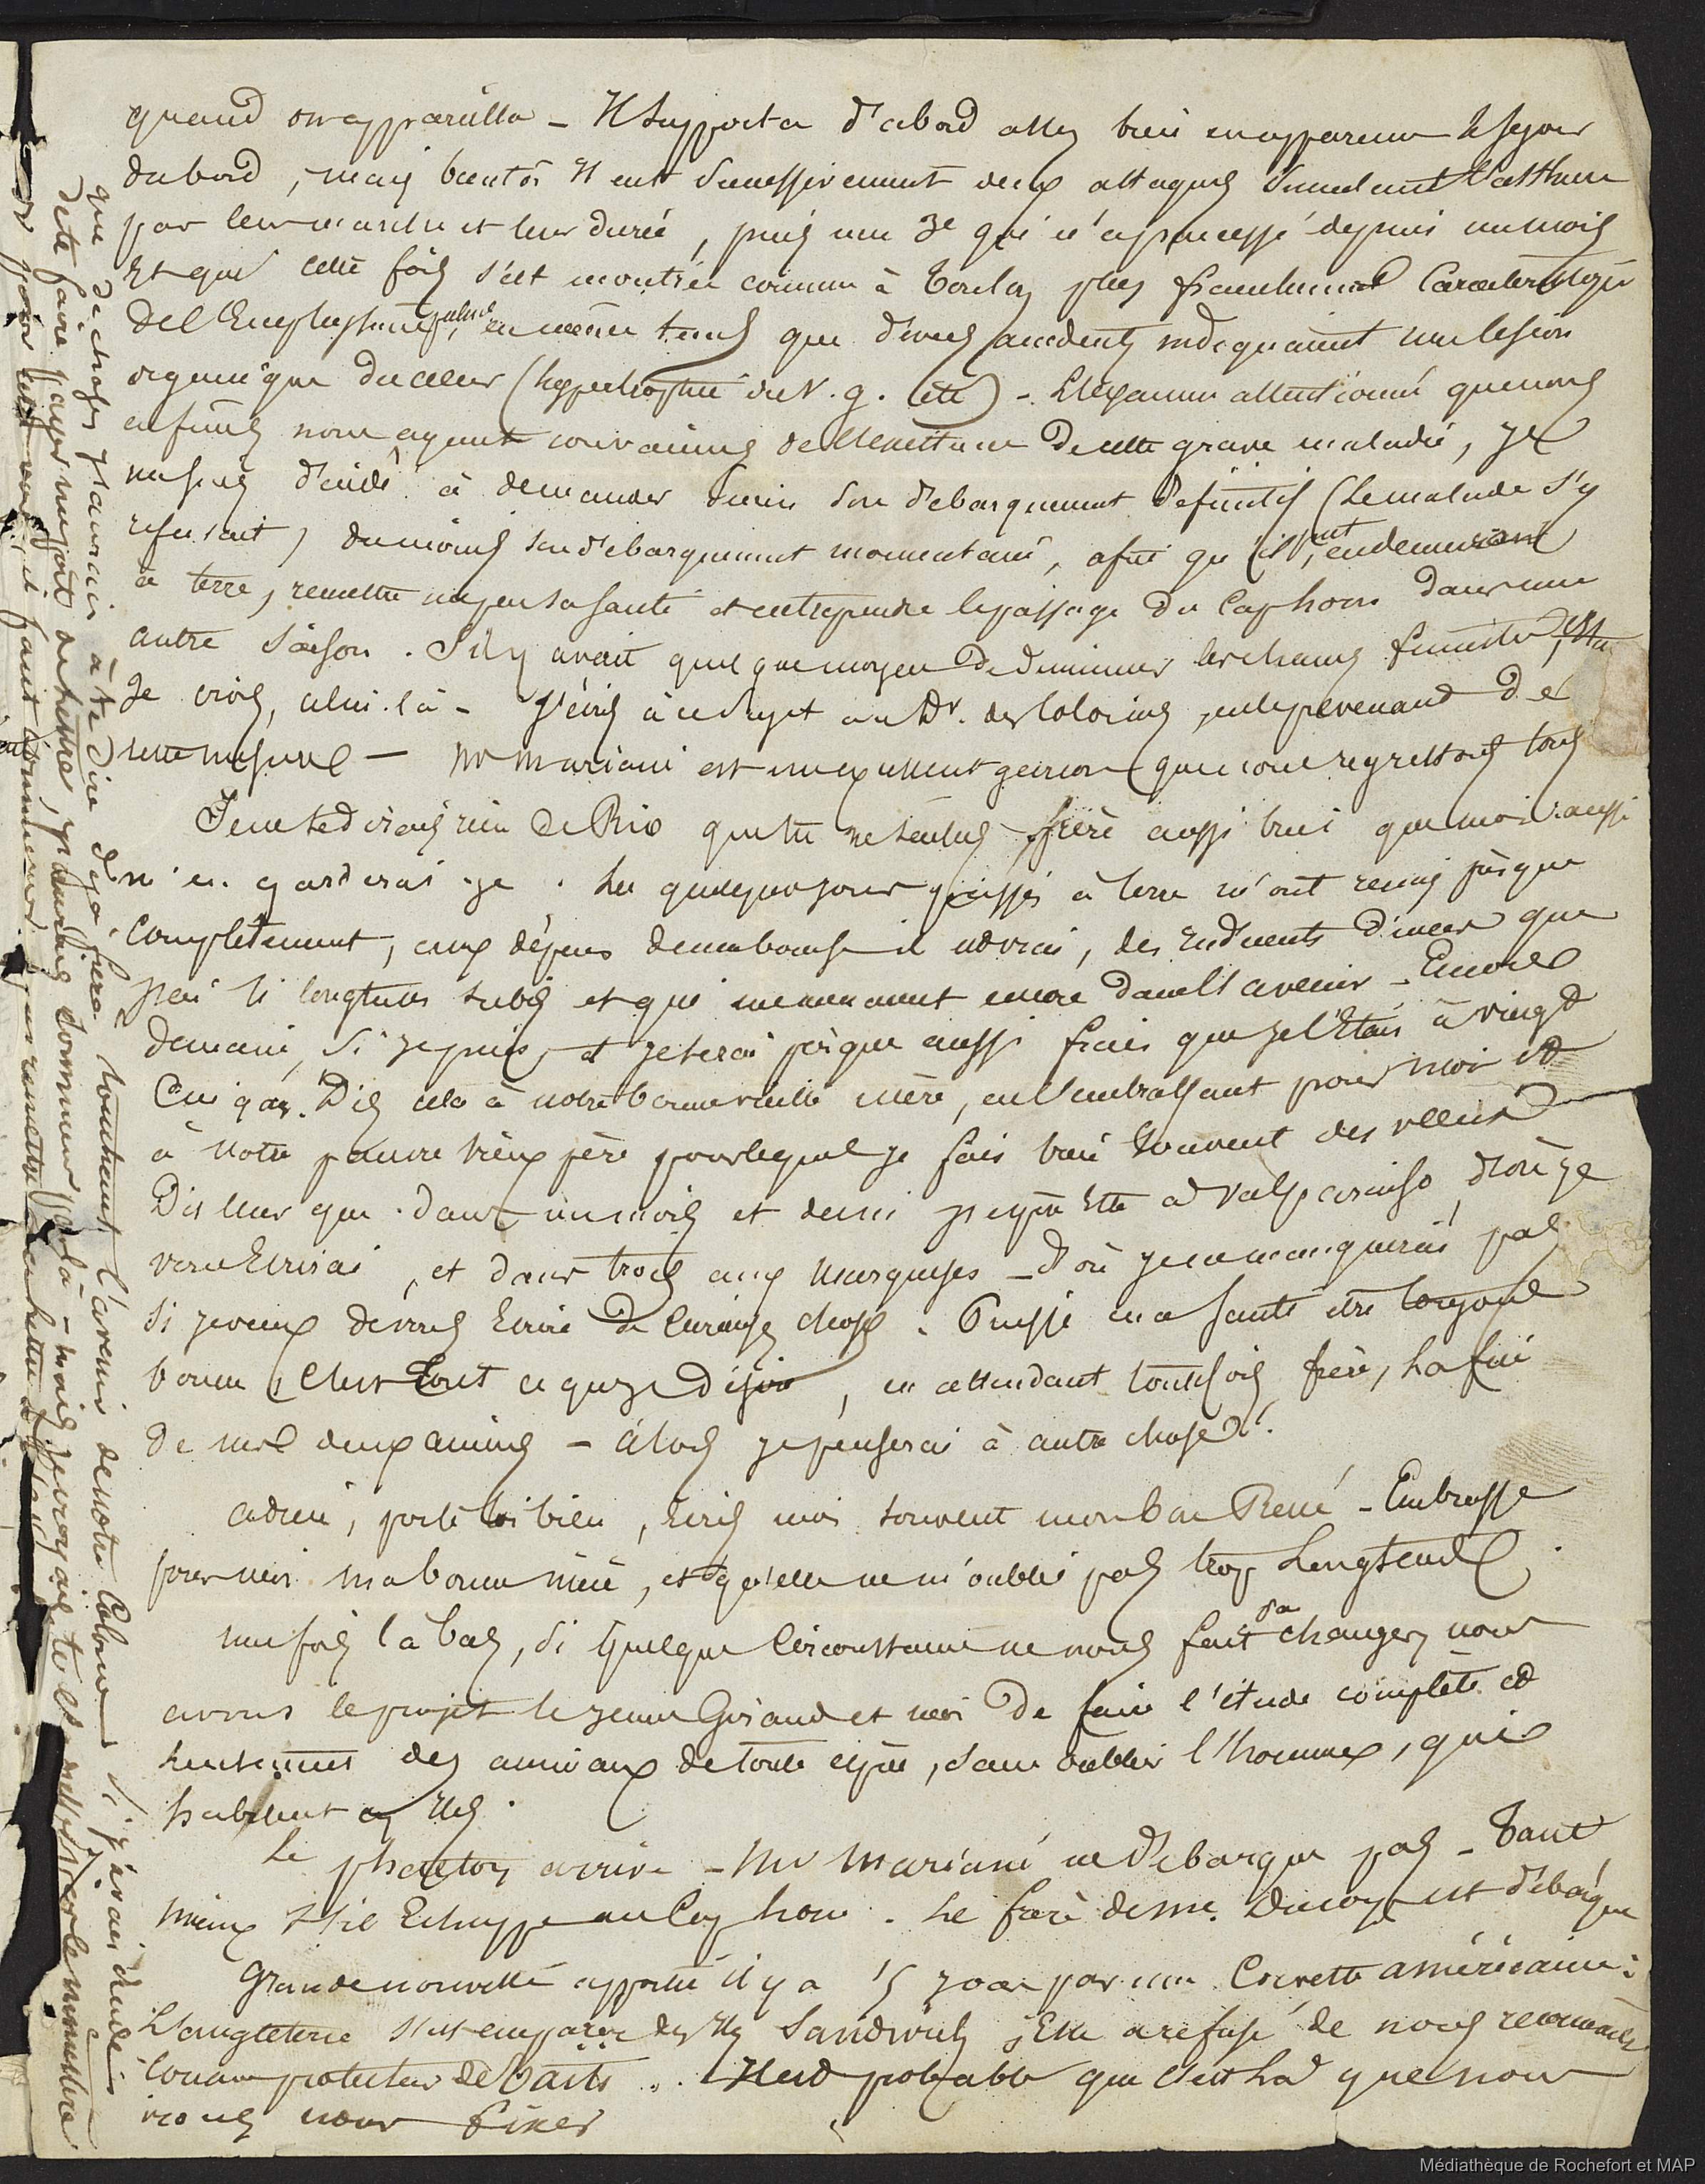 quand on appareilla - Il supporta d'abord assez bien en apparence le sejour
du bord, mais bientôt il eut successivement deux attaques simulant l'asthme
par leur marche et leur durée, puis une 3e qui n'a pas cessé depuis un mois
et qui cette fois s'est montrée comme à Toulon plus franchement caractéristique
de l'Emphyseme pulmre en même tems que divers accidents indiquaient une lesion
organique du cœur (hypertrophie du V. g. etc) - L'examen attentionné que nous
en fimes nous ayant convaincus de l'existence de cette grave maladie, je
me suis décidé à demander sinon son débarquement définitif (le malade s'y
refusait) du moins son débarquement momentané, afin qu'il put, en demeurant
à terre, remettre un peu sa santé et entreprendre le passage du Cap horn dans une
autre saison. S'il y avait quelque moyen de diminuer les chances funestes, c'était
je crois, celui-là - J'écris à ce sujet au Dr. des Colonies, en le prevenant de
cette mesure - Mr Mariani est un excellent garçon que nous regrettons tous
Je ne te dirais rien de Rio que tu ne saches, frère aussi bien que moi aussi
m'en garderai-je. Les quelques jours passés à terre m'ont remis presque
completement, aux dépens de ma bourse il est vrai, des
j'ai si longtems subis et qui me menacent encore dans l'avenir - Encore
demain, si je puis, et je serai presque aussi frais que je l'étais à vingt
cinq ans. Dis cela à notre bonne vieille mère, en l'embrassant pour moi et
à notre pauvre vieux père pour lequel je fais bien souvent des vœux
Dis leur que dans un mois et demi j'espère être à Valparaiso, d'où je
vous écrirai, et dans trois aux Marquises - d'où je ne manquerai pas
si je veux de vous écrire de curieuses choses. Puisse ma santé être toujours
bonne, c'est tout ce que je désire, en attendant toutefois frère, la fin
de mes deux années - alors je penserai à autre chose.
adieu, porte toi bien, écris moi souvent mon bon René - Embrasse
pour moi ma bonne mère, et qu'elle ne m'oublie pas trop longtems.
une fois là bas, si quelque circonstance ne nous fait pas changer, nous
avons le projet le jeune Giraud et moi de faire l'étude complète et
des animaux de toute espèce, sans oublier l'homme, qui
habitent ces îles.
Le phaeton arrive - Mr Mariani ne débarque pas - Tant
mieux s'il échappe au Cap horn. Le frère de Me. est débarqué
Grande nouvelle apportée il y a 15 jours par une Corvette américaine:
L'angleterre s'est emparée des îles Sandwich, Elle a refusé de nous reconnaître
comme protecteur de Taïti ... Il est probable que c'est là que nous
irons nous fixer
que de choses j'aurais à te dire déjà, frère, touchant l'avenir de notre Colonie si j'avais
de te faire payer un port de lettre, j'aurais